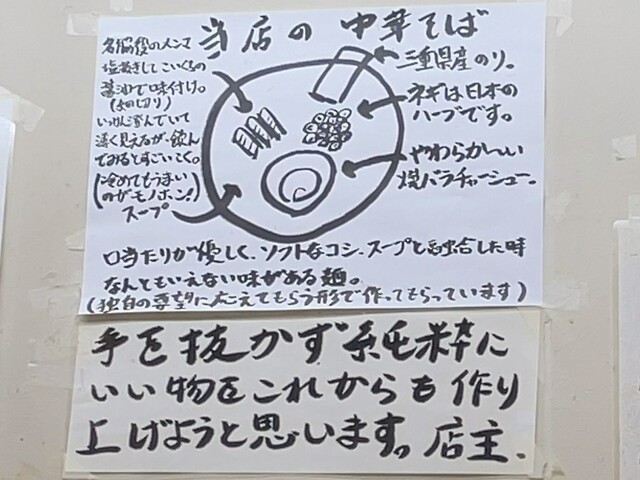 当店の中華そば
名脇役のメンマ
塩抜きしてこいくちの
醤油で味付け。
(細切り)
いっけん澄んでいて
薄く見えるが飲ん
でみるとすごいこく。
(冷めてもうまい
のがモノホン!)
スープ
三重県産のり。
ネギは日本の
ハーブです。
やわらか〜い
焼バラチャーシュー。
口当たりが優しく、ソフトなコシ、スープと融合した時
なんともいえない味がある麺。
(独自の要望に応えてもらう形で作ってもらっています)
手を抜かず純粋に
いい物をこれからも作り
上げようと思います。店主、